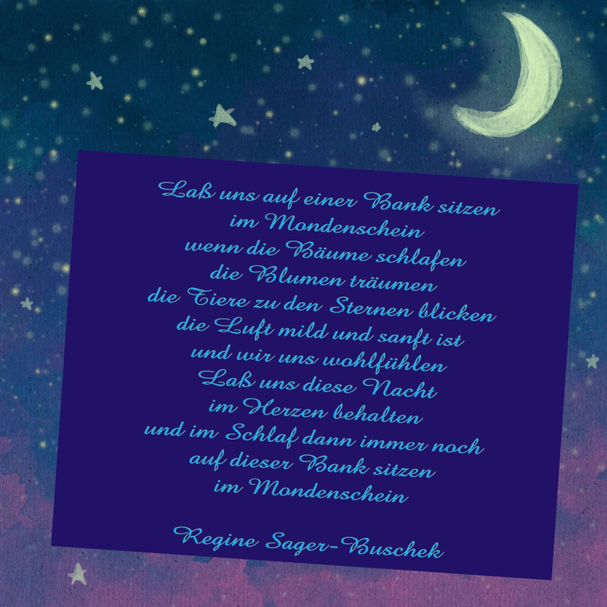 Laß uns auf einer Bank sitzen
im Mondenschein
wenn die Bäume schlafen
die Blumen träumen
die Tiere zu den Sternen blicken
die Luft mild und sanft ist
und wir uns wohlfühlen
Laß uns diese Nacht
im Herzen behalten
und im Schlaf dann immer noch
auf dieser Bank sitzen
im Mondenschein
Regine Sager-Buschek